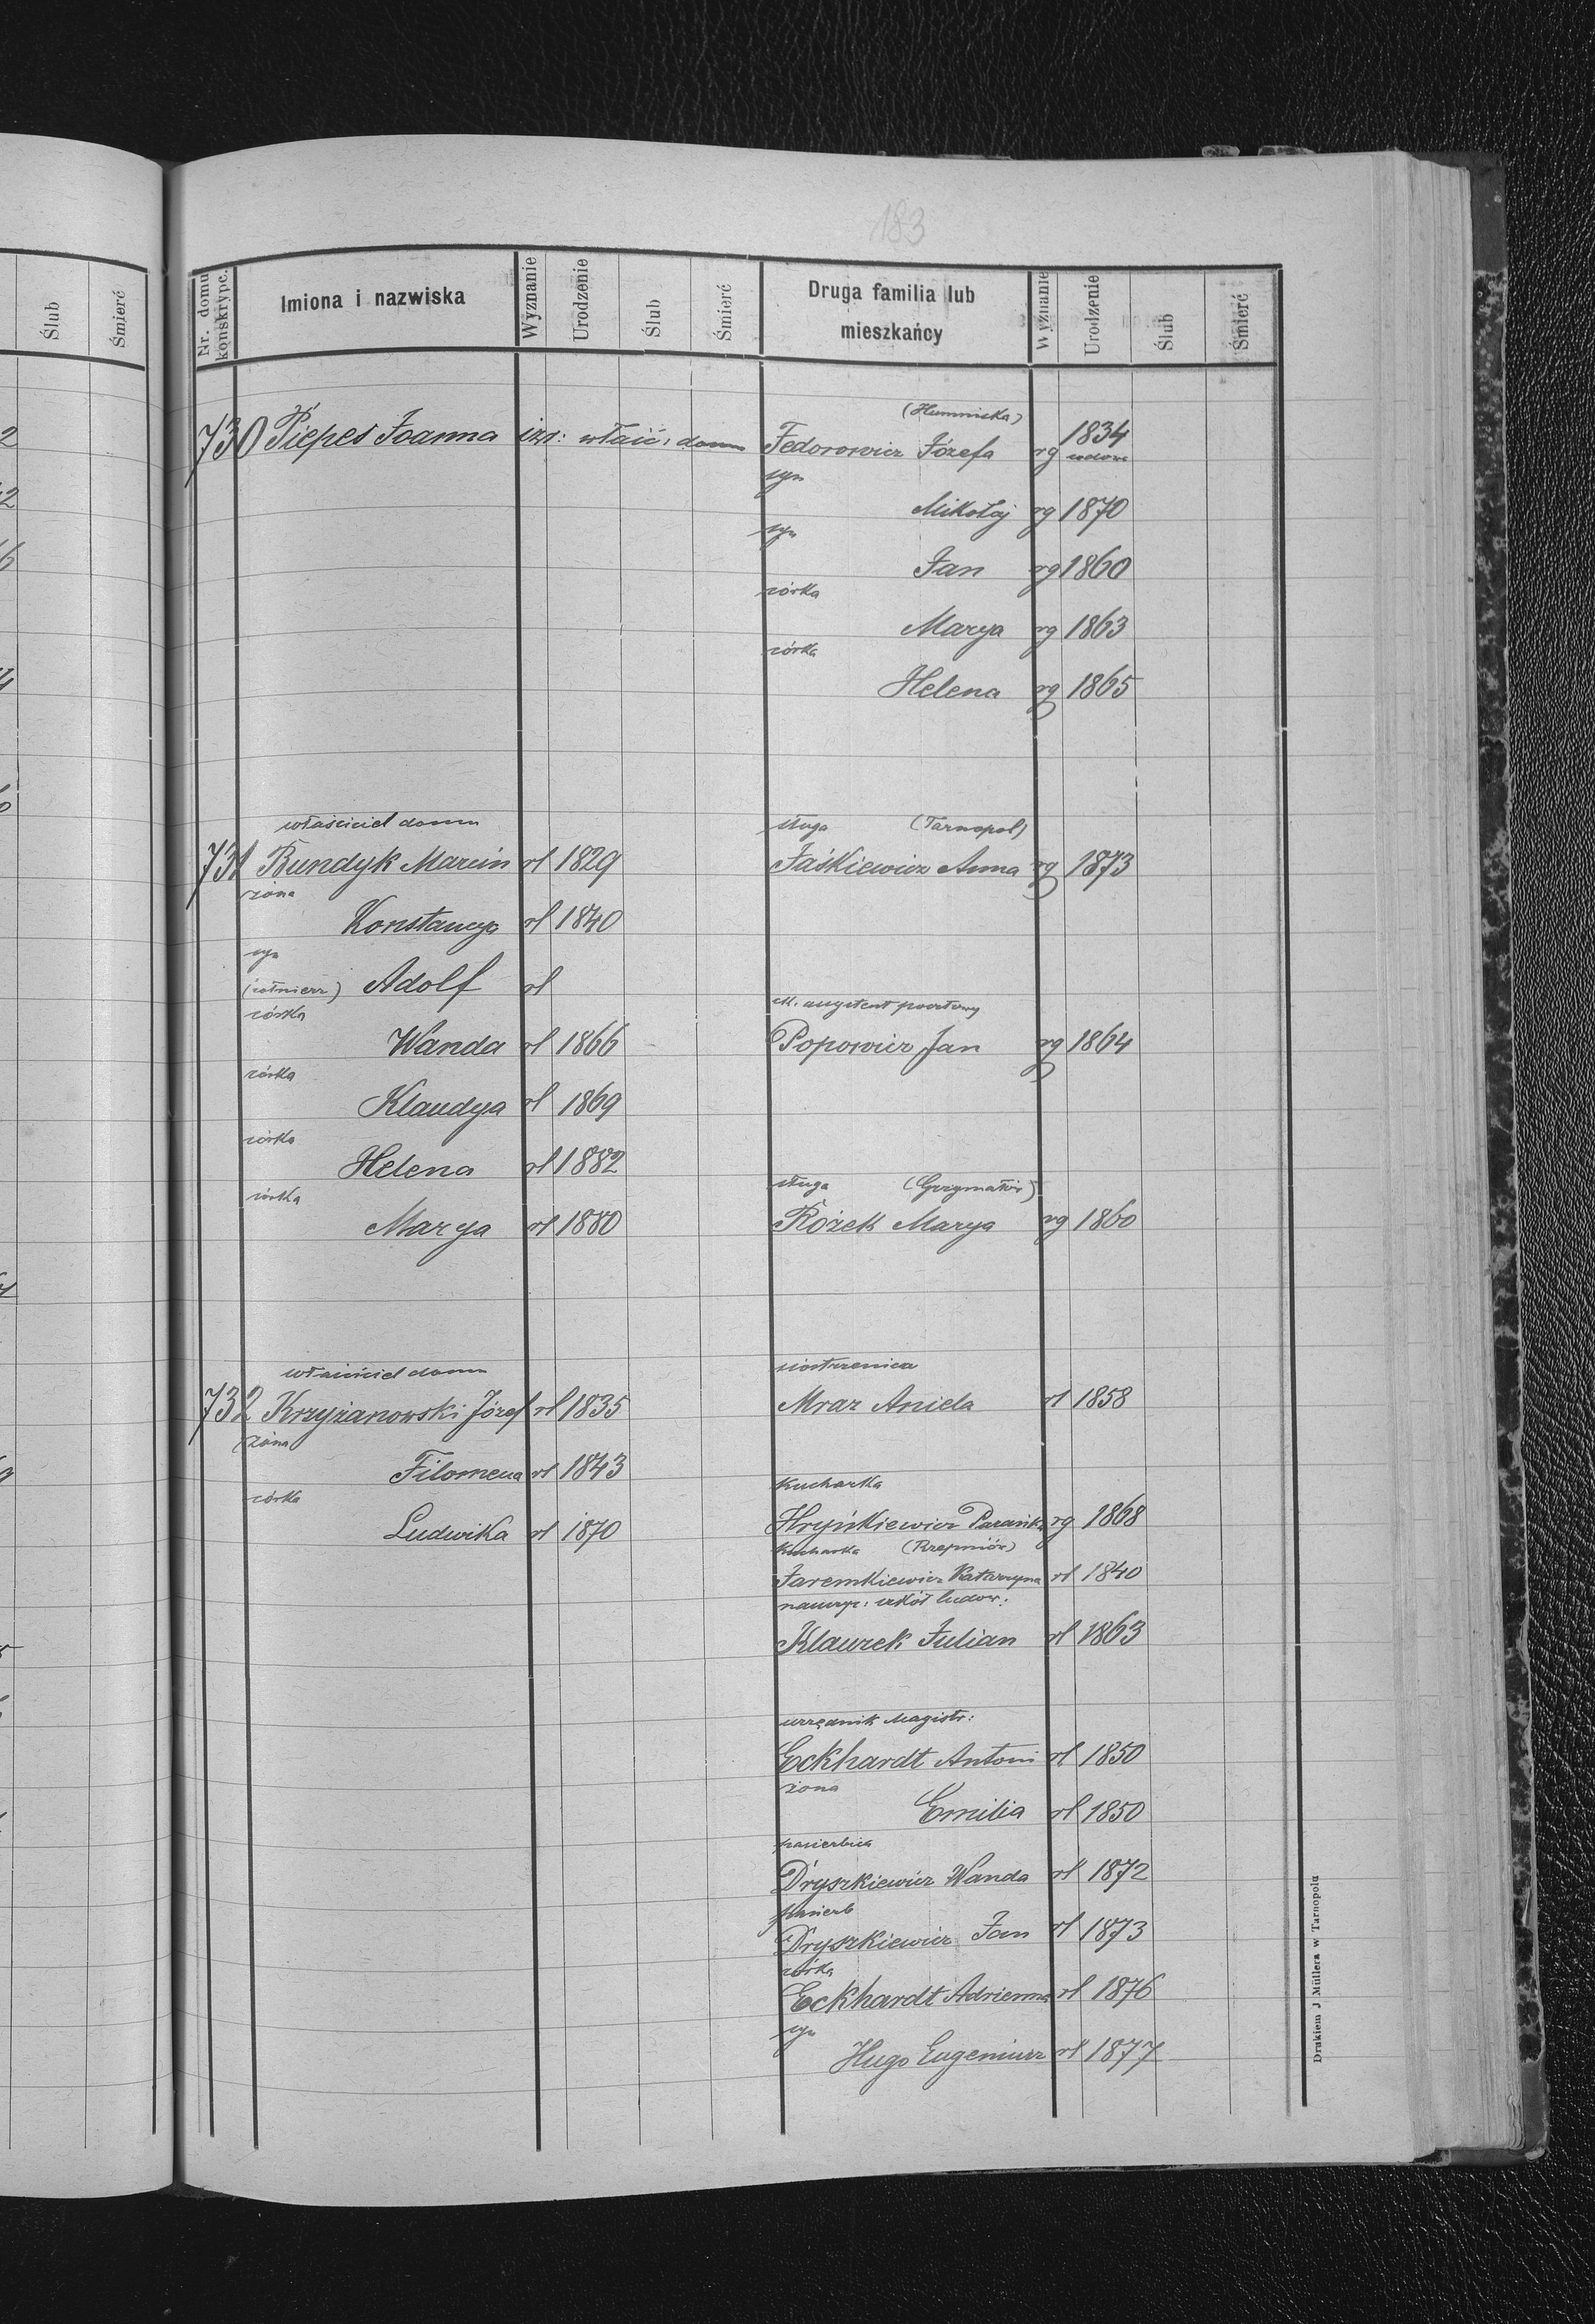 183
Nr. domu konskrypc. Imiona i nazwiska Wyznanie Urodzenie Ślub Śmierć Druga familia lub mieszkańcy Wyznanie Urodzenie Ślub Śmierć
Ślub Śmierć
(Humniska)
730 Piepes Joanna izr: właśc: domu Fedorowicz Józefa rg 1834
wdowa
syn
Mikołaj rg 1870
syn
Jan rg 1860
córka
Marya rg 1863
córka
Helena rg 1865
właściciel domu
731 Bundyk Marcin rl 1829
żona
Konstancya rl 1840
syn
(żołnierz) Adolf rl
córka
Wanda rl 1866
córka
Klaudya rl 1869
córka
Helena rl 1882
córka
Marya rl 1880
sługa (Tarnopol)
Jaśkiewicz Anna rg 1873
asystent pocztowy
Popowicz Jan rg 1864
sługa (Grzymałów)
Rożek Marya rg 1860
właściciel domu
732 Krzyżanowski Józef rl 1835
żona
Filomena rl 1843
córka
Ludwika rl 1870
siostrzenica
Mraz Aniela rl 1858
Kucharka
Hryńkiewicz Parańka rg 1868
Kucharka
Jaremkiewicz Katarzyna rl 1840
nauczyc: szkół ludow:
Klaurek Julian rl 1863
urzędnik Magistr:
Eckhardt Antoni rl 1850
żona
Emilia rl 1850
pasierbica
Dryszkiewicz Wanda rl 1872
pasierb
Dryszkiewicz Jan rl 1873
córka
Eckhardt Adrienna rl 1876
syn
Hugo Eugeniusz rl 1877
Drukiem J Müllera w Tarnopolu